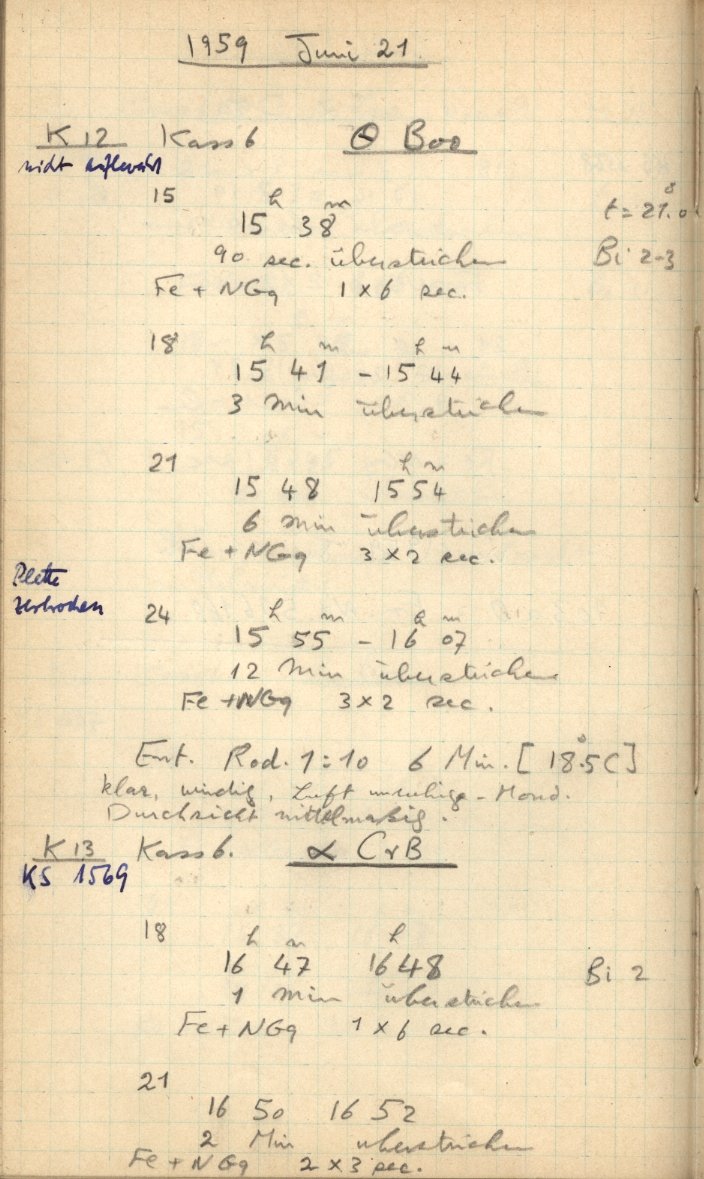 1959 Juni 21.
K 12 Kass 6 Θ Boo
nicht
15
15 h 38 m t = 21.0
90 sec. überstrichen Bi 2-3
Fe + NGg 1 x 6 sec.
18
15 h 41 m - 15 h 44 m
3 Min überstrichen
21
15 48 15 h 54 m
6 Min überstrichen
Fe + NGg 3 x 2 sec.
Platte
zerbrochen
24
15 h 55 m - 16 h 07 m
12 Min überstrichen
Fe + NGg 3 x 2 sec.
Ent. Rod. 1:10 6 Min. [18.°5 C]
klar, windig, Luft unruhig - Mond.
Durchsicht mittelmäßig.
K 13 Kass 6. α CrB
KS 1569
18
16 h 47 m 16 h 48
1 Min überstrichen Bi 2
Fe + NGg 1 x 6 sec.
21
16 50 16 52
2 Min überstrichen
Fe + NGg 2 x 3 sec.